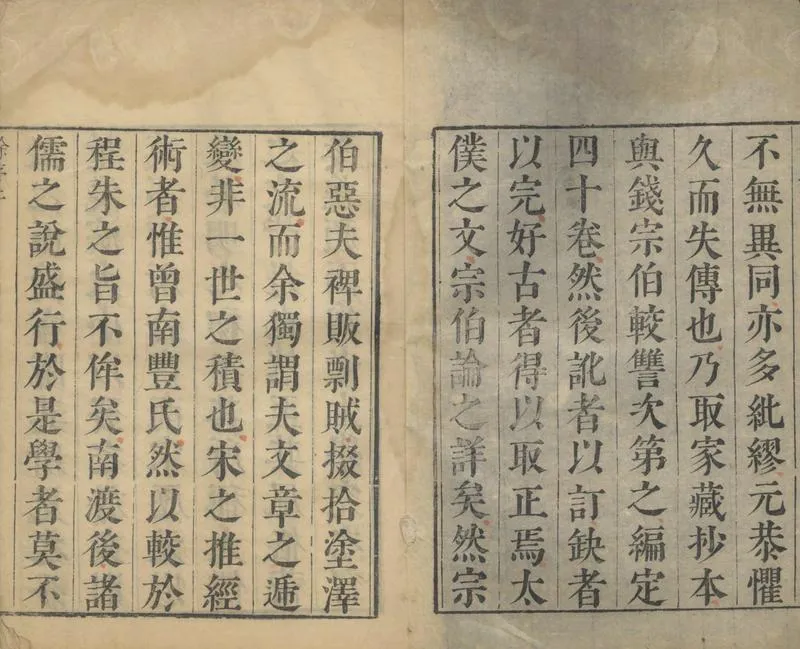 不無異同亦多紕繆元恭懼
久而失傳也乃取家藏抄本
與錢宗伯較讐次第之編定
四十卷然後訛者以訂缺者
以完好古者得以取正焉太
僕之文宗伯論之詳矣然宗
伯惡夫裨販剽賊掇拾塗澤
之流而余獨謂夫文章之遞
變非一世之積也宋之推經
術者惟曾南豐氏然以較於
程朱之旨不侔矣南渡後諸
儒之說盛行於是學者莫不